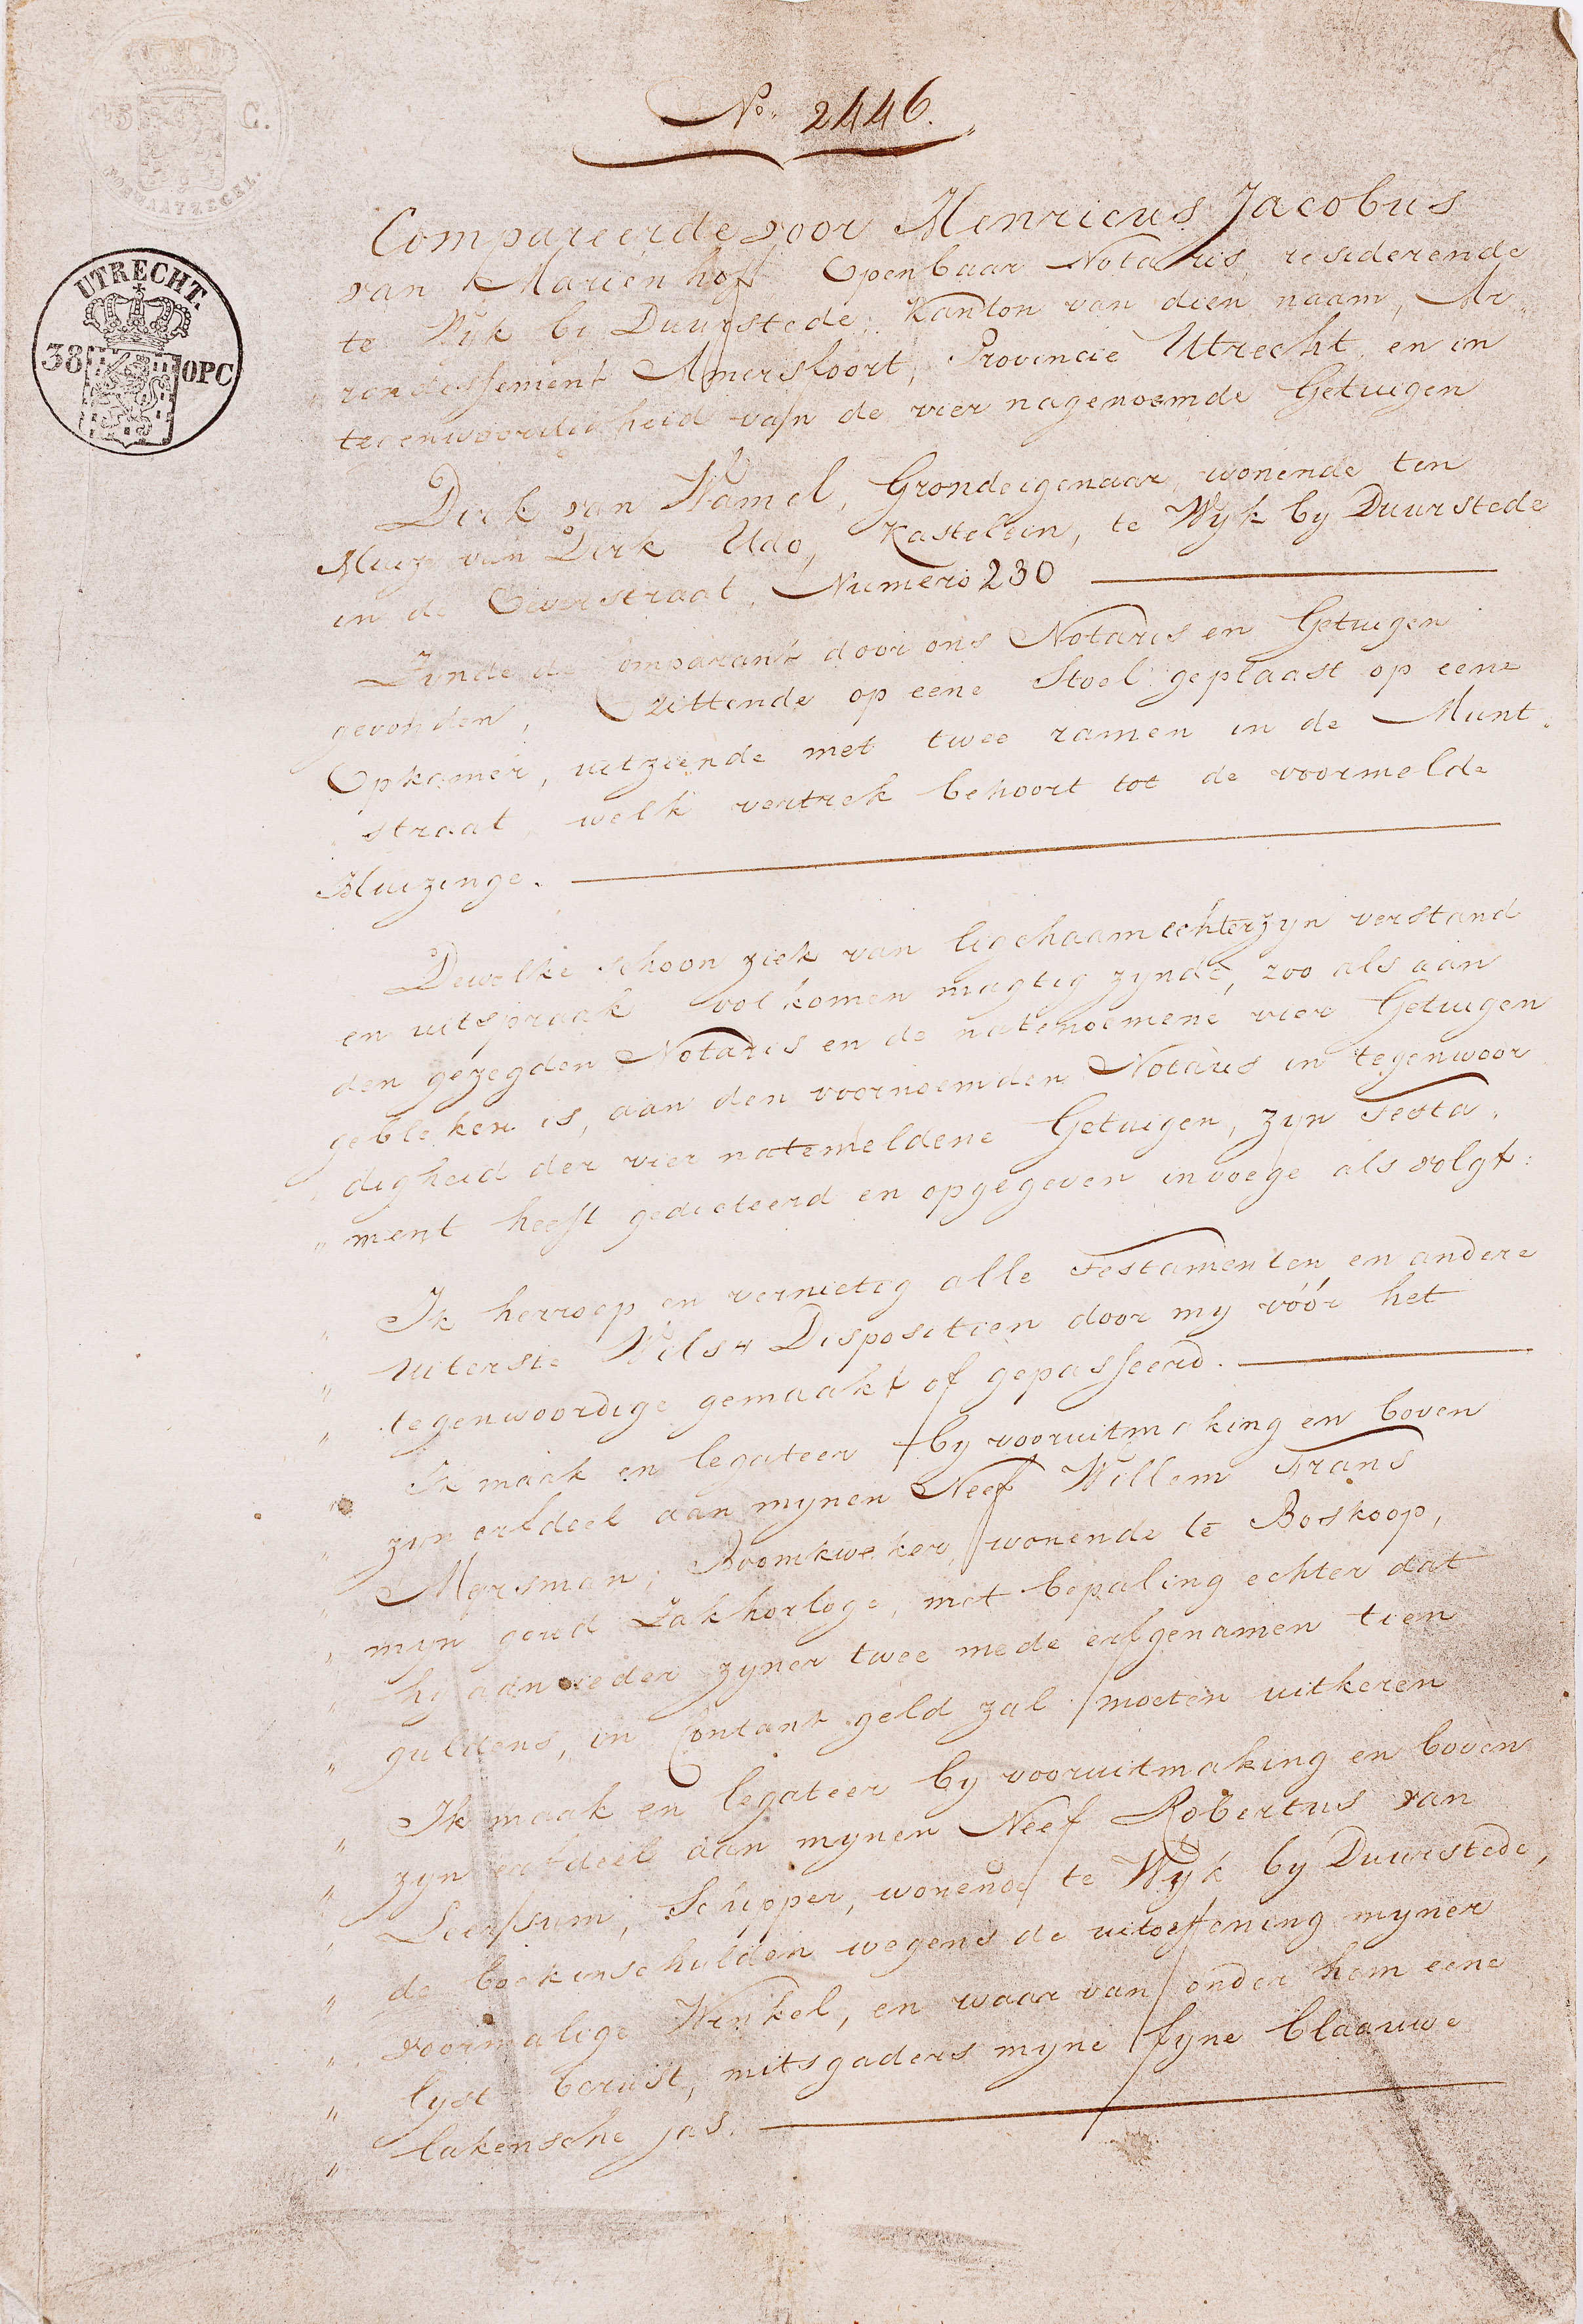 No. 2446.
45 C.
FORMAATZEGEL.
UTRECHT.
38 OPC
Compareerde voor Henricus Jacobus
van Mariënhoff Openbaar Notaris, residerende
te Wijk by Duurstede, Kanton van dien naam, Ar„
rondissement Amersfoort, Provincie Utrecht, en in
tegenwoordigheid van de vier nagenoemde Getuigen
Dirk van Wamel, Grondeigenaar, wonende ten
Huize van Dirk Udo, Kastelein, te Wyk by Duurstede
in de Oeverstraat, Numero 230
Zynde de Comparant door ons Notaris en Getuigen
gevonden, zittende op eene Stoel geplaast op eene
Opkamer, uitziende met twee ramen in de Munt„
„straat, welk vertrek behoort tot de voormelde
Huizinge.
Dewelke schoon ziek van ligchaam echter zyn verstand
en uitspraak volkomen magtig zynde, zoo als aan
den gezegden Notaris en de natenoemene vier Getuigen
gebleken is, aan den voornoemden Notaris in tegenwoor„
„digheid der vier natemeldene Getuigen, zyn Testa„
„ment heeft gedicteerd en opgegeven invoege als volgt:
„ Ik herroep en vernietig alle Testamenten en andere
„ Uiterste Wils Dispositien door my vóór het
„ tegenwoordige gemaakt of gepasseerd.
„ Ik maak en legateer by vooruitmaking en boven
„ zyn erfdeel aan mynen Neef Willem Frans
„ Mersman, Boomkweker, wonende te Boskoop,
„ myn goud Zakhorloge, met bepaling echter dat
„ hy aan ieder zyner twee mede erfgenamen tien
„ guldens, in Contant geld zal moeten uitkeren
„ Ik maak en legateer by vooruitmaking en boven
„ zyn erfdeel aan mynen Neef Robertus van
„ Leersum, Schipper, wonende te Wyk by Duurstede,
„ de boekenschulden wegens de uitoeffening myner
„ voormalige Winkel, en waar van onder hem eene
„ lyst berust, mitsgaders myne fyne blaauwe
„ lakensche jas.